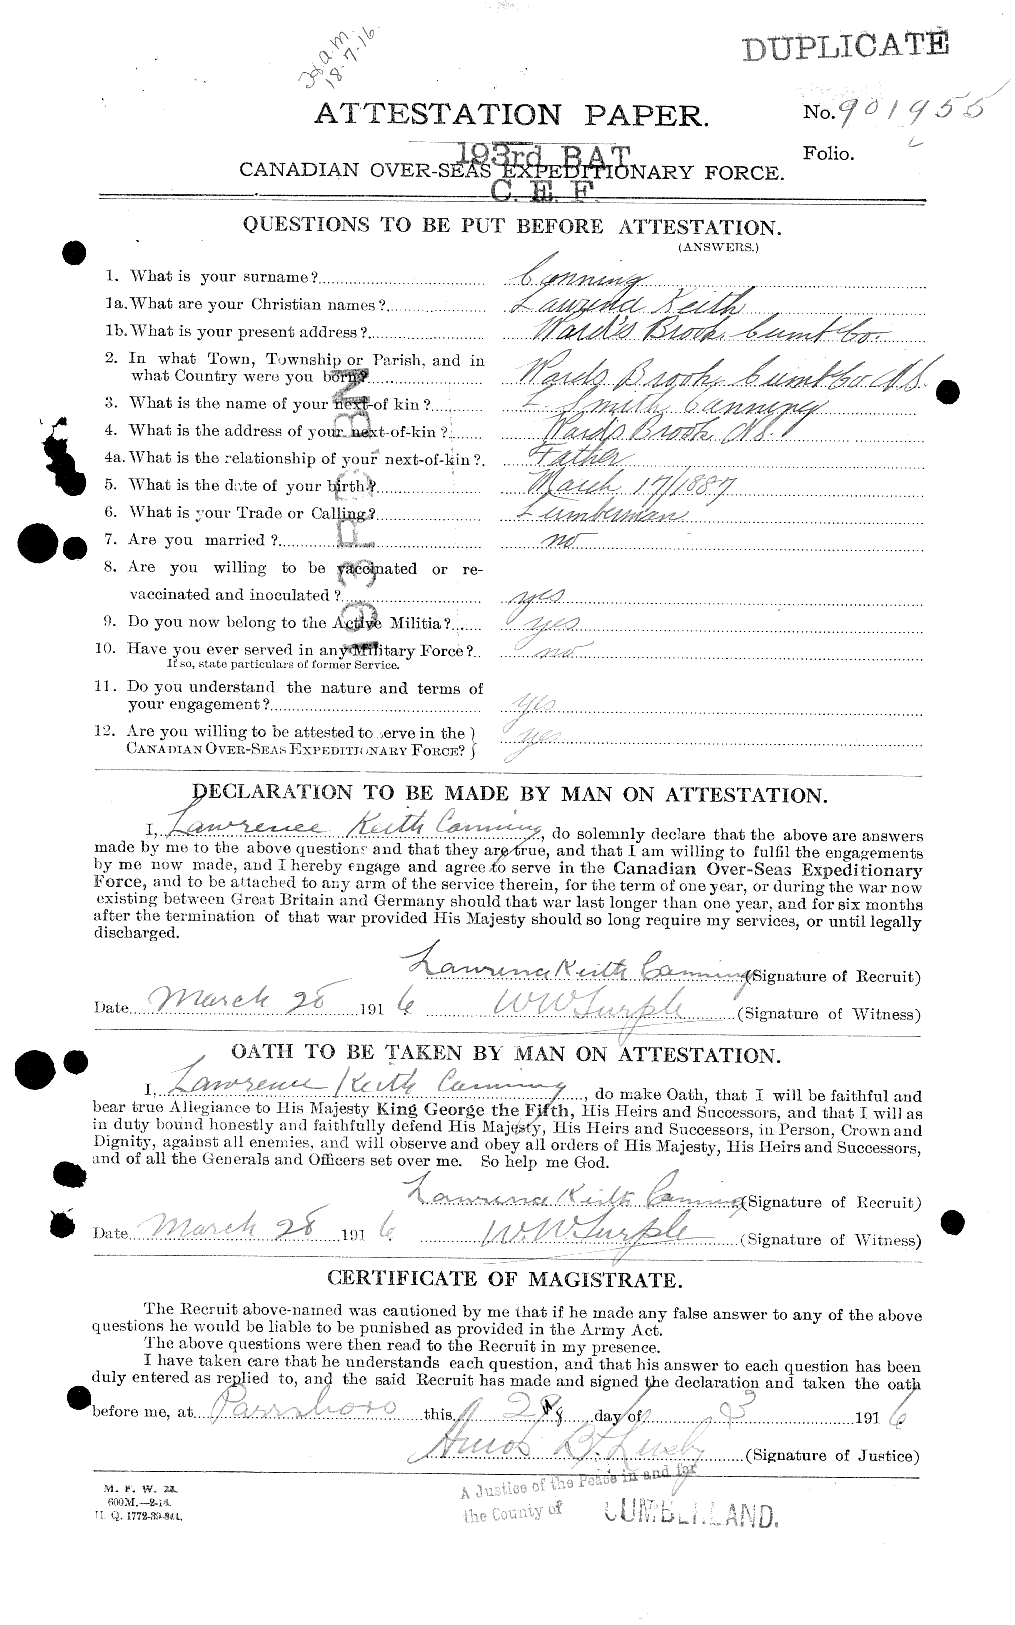 DUPLICATE
18-7-16
ATTESTATION PAPER.
No. 901955
Folio.
193rd BAT
CANADIAN OVER-SEAS EXPEDITIONARY FORCE.
C. E. F.
QUESTIONS TO BE PUT BEFORE ATTESTATION.
(ANSWERS.)
1. What is your surname? Canning
1a. What are your Christian names? Lawrence Keith
1b. What is your present address? Ward's Brook Cumb Co.
2. In what Town, Township or Parish, and in
what Country were you born? Wards Brook Cumb Co N.S.
3. What is the name of your next-of kin? L. Smith Canning
4. What is the address of your next-of-kin? Wards Brook N.S.
4a. What is the relationship of your next-of-kin? Father
5. What is the date of your birth? March 17/1887
6. What is your Trade or Calling? Lumberman
7. Are you married? no
8. Are you willing to be vaccinated or re-
vaccinated and inoculated? yes
9. Do you now belong to the Active Militia? yes
10. Have you ever served in any Military Force? no
If so, state particulars of former Service.
11. Do you understand the nature and terms of
your engagement? yes
12. Are you willing to be attested to serve in the
CANADIAN OVER-SEAS EXPEDITIONARY FORCE? yes
193RD BN
DECLARATION TO BE MADE BY MAN ON ATTESTATION.
I, Lawrence Keith Canning, do solemnly declare that the above are answers
made by me to the above questions and that they are true, and that I am willing to fulfil the engagements
by me now made, and I hereby engage and agree to serve in the Canadian Over-Seas Expeditionary
Force, and to be attached to any arm of the service therein, for the term of one year, or during the war now
existing between Great Britain and Germany should that war last longer than one year, and for six months
after the termination of that war provided His Majesty should so long require my services, or until legally
discharged.
Lawrence Keith Canning (Signature of Recruit)
Date March 28 1916 W W Surple (Signature of Witness)
OATH TO BE TAKEN BY MAN ON ATTESTATION.
I, Lawrence Keith Canning, do make Oath, that I will be faithful and
bear true Allegiance to His Majesty King George the Fifth, His Heirs and Successors, and that I will as
in duty bound honestly and faithfully defend His Majesty, His Heirs and Successors, in Person, Crown and
Dignity, against all enemies, and will observe and obey all orders of His Majesty, His Heirs and Successors,
and of all the Generals and Officers set over me. So help me God.
Lawrence Keith Canning (Signature of Recruit)
Date March 28 1916 W. W Surple (Signature of Witness)
CERTIFICATE OF MAGISTRATE.
The Recruit above-named was cautioned by me that if he made any false answer to any of the above
questions he would be liable to be punished as provided in the Army Act.
The above questions were then read to the Recruit in my presence.
I have taken care that he understands each question, and that his answer to each question has been
duly entered as replied to, and the said Recruit has made and signed the declaration and taken the oath
before me, at Parrsboro this 28 day of 3 1916
Amos B. Lusby (Signature of Justice)
A Justice of the Peace in and for
the County of CUMBERLAND.
M. F. W. 23.
600M.—2-16.
H. Q. 1772-39-841.